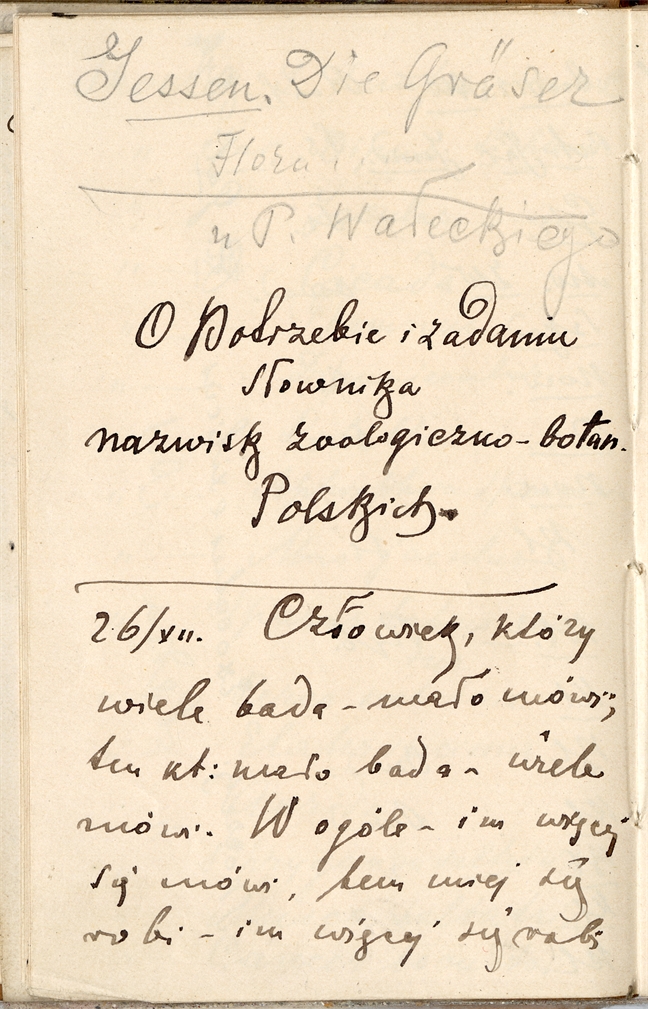 Jessen. Die Gräser
Flora
u P. Wałeckiego
O Potrzebie i zadaniu
słownika
nazwisk zoologiczno-botan.
Polskich
26/XII. Człowiek, który
wiele bada - mało mówi;
ten kt: mało bada - wiele
mówi. W ogóle - im więcej
się mówi, tem mniej się
robi - im więcej się robi